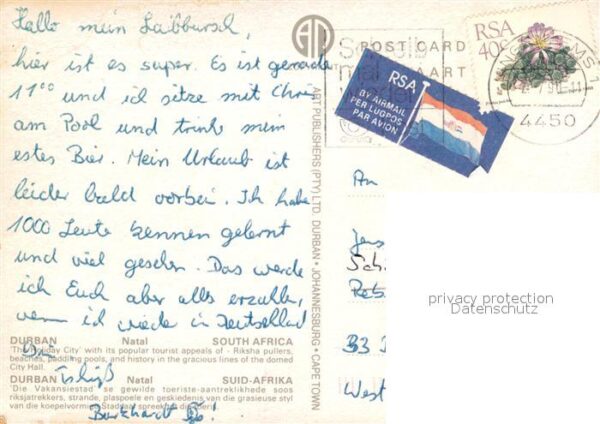 Hallo mein Saibbursch,
hier ist es super. Es ist gerade
11⁰⁰ und ich sitze mit Chris
am Pool und trinke mein
estes Bier. Mein Urlaub ist
leider bald vorbei. Ich habe
1000 Leute kennen gelernt
und viel gesehen. Das werde
ich Euch aber alles erzählen,
wenn ich wieder in Deutschland
bin.
Tschüß
Burkhardt
DURBAN Natal SOUTH AFRICA
'The Holiday City' with its popular tourist appeals of - Riksha pullers,
beaches, paddling pools, and history in the gracious lines of the domed
City Hall.
DURBAN Natal SUID-AFRIKA
'Die Vakansiestad' se gewilde toeriste-aantreklikhede soos
riksjatrekkers, strande, plaspoele en geskiedenis van die grasieuse styl
van die koepelvormige Stadsaal
ART PUBLISHERS (PTY) LTD. DURBAN • JOHANNESBURG • CAPE TOWN
POST CARD
KAART
RSA
BY AIRMAIL
PER LUGPOS
PAR AVION
RSA
40c
4450
An
Jens
53
West
privacy protection
Datenschutz